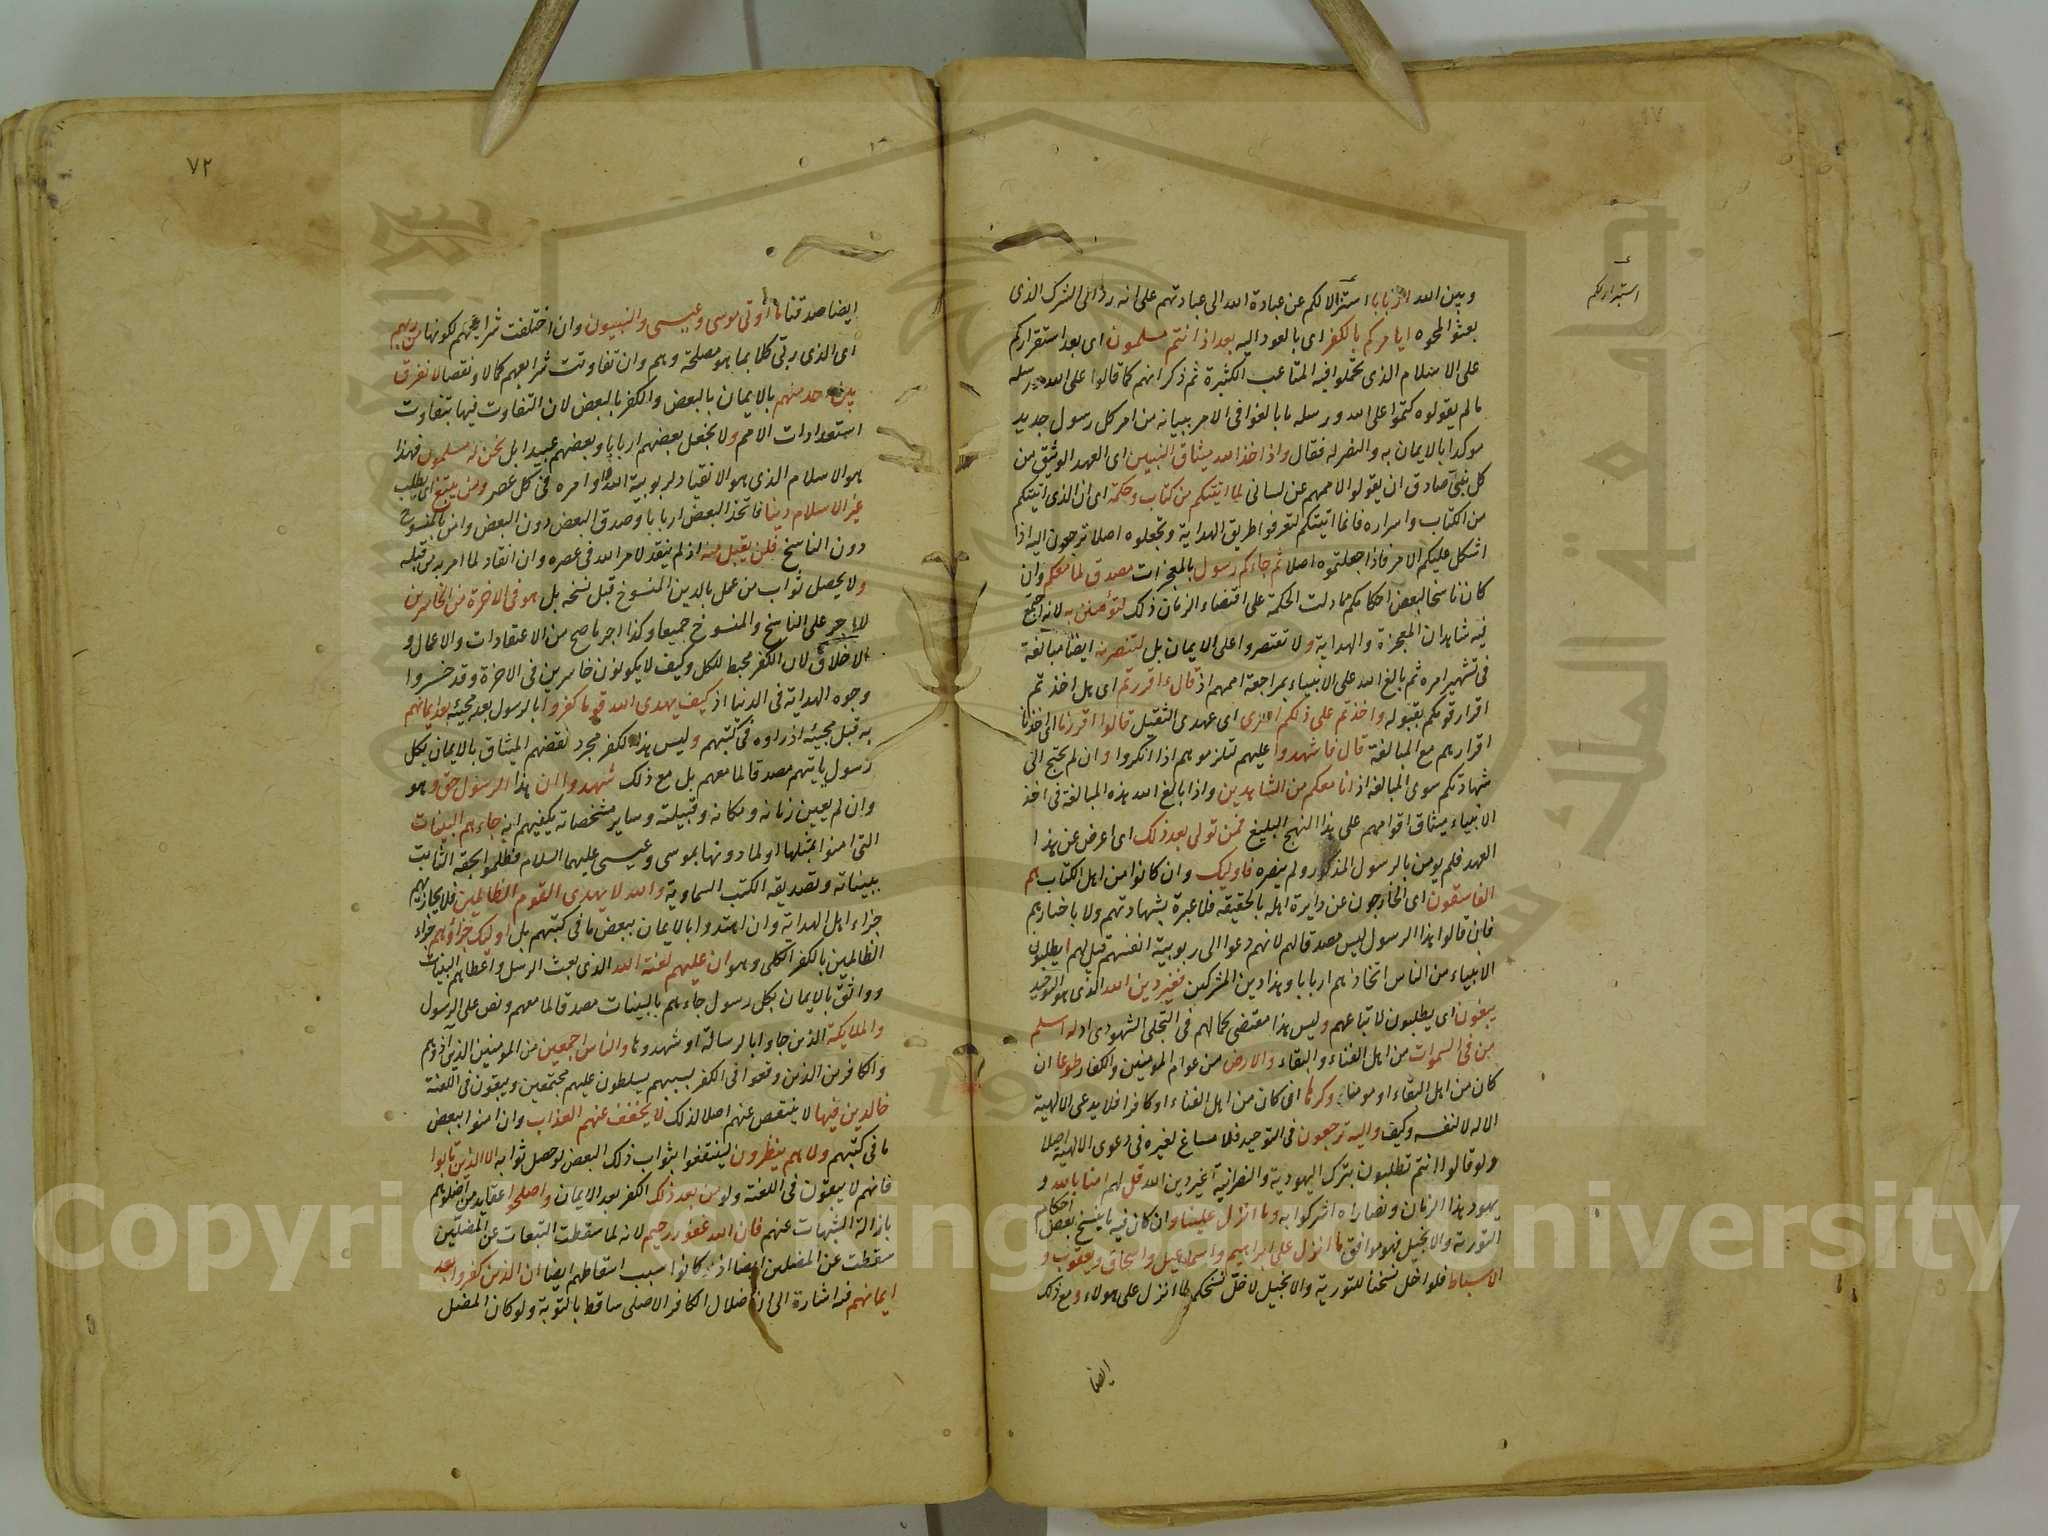 وبين الله اربابا استنزالا لكم عن عبادة الله الى عبادتهم على انه رد الى الشرك الذى
بعثوا لمحوه ايامركم بالكفر اى بالعود اليه بعد اذ انتم مسلمون اى بعد استقراركم
على الاسلام الذى تحملوا فيه المتاعب الكثيرة ثم ذكر انهم كما قالوا على الله ورسله
ما لم يقولوه كتموا على الله ورسله ما بالغوا فى الامر ببيانه من امر كل رسول جديد
موكدا بالايمان به والنصر له فقال واذ اخذ الله ميثاق النبيين اى العهد الوثيق من
كل نبى صادق ان يقولوا لاممهم عن لسانى لما اتيتكم من كتاب وحكمة اى ان الذى اتيتكم
من الكتاب واسراره فانما اتيتكم لتعرفوا طريق الهداية وتجعلوه اصلا ترجعون اليه اذا
اشكل عليكم الامر فاذا جعلتموه اصلا ثم جاءكم رسول بالمعجزات مصدق لما معكم وان
كان ناسخا لبعض احكامكم مما دلت الحكمة على اقتضاء الزمان ذلك لتؤمنن به لانه اجتمع
فيه شاهدان المعجزة والهداية ولا تقتصروا على الايمان بل لتنصرنه ايضا مبالغة
فى تشهير امره ثم بالغ الله على الانبياء بمراجعة اممهم اذ قال ءاقررتم اى هل اخذتم
اقرار قومكم بقبوله واخذتم على ذلكم اصرى اى عهدى الثقيل قالوا اقررنا اى اخذنا
اقرارهم مع المبالغة قال فاشهدوا عليهم لتلزموهم اذا انكروا وان لم يحتج الى
شهادتكم سوى المبالغة اذ انا معكم من الشاهدين واذا بالغ الله هذه المبالغة فى اخذ
الانبياء ميثاق اقوامهم على هذا النهج البليغ فمن تولى بعد ذلك اى اعرض عن هذا
العهد فلم يومن بالرسول المذكور ولم ينصره فاوليك وان كانوا من اهل الكتاب هم
الفاسقون اى الخارجون عن دايرة اهله بالحقيقة فلا عبرة بشهادتهم ولا باخبارهم
فان قالوا هذا الرسول ليس مصدقا لهم لانهم دعوا الى ربوبية انفسهم قيل لهم ايطلبون
الانبياء من الناس اتخاذهم اربابا وهذا دين المشركين فغير دين الله الذى هو التوحيد
يبغون اى يطلبون لاتباعهم وليس هذا مقتضى كمالهم فى التجلى الشهودى اذ له اسلم
من فى السموات من اهل الفناء والبقاء والارض من عوام المومنين والكفار طوعا ان
كان من اهل البقاء او مومنا وكرها ان كان من اهل الفناء او كافرا فلا يدعى الالهية
الا له لا لنفسه وكيف واليه ترجعون فى التوحيد فلا مساغ لغيره فى دعوى الالهية اصلا
ولو قالوا انتم تطلبون بترك اليهودية والنصرانية غير دين الله قل لهم امنا بالله و
يهود هذا الزمان ونصاراه اشركوا به وما انزل علينا وان كان فيه ما ينسخ بعض احكام
التورية والانجيل فهو موافق ما انزل على ابراهيم واسماعيل واسحاق ويعقوب و
الاسباط فلو اخل نسخنا للتورية والانجيل لاخل نسخكم لما انزل على هولاء ومع ذلك
ايضا
استبدادلكم
٧٢
ايضا صدقنا ما اوتى موسى وعيسى والنبيون وان اختلفت شرايعهم لكونها من ربهم
اى الذى ربى كلا بما هو مصلحة وهم وان تفاوتت شرايعهم كمالا ونقصا لا نفرق
بين احد منهم بالايمان بالبعض والكفر بالبعض لان التفاوت فيها بتفاوت
استعدادات الامم ولا نجعل بعضهم اربابا وبعضهم عبيدا بل نحن له مسلمون فهذا
هو الاسلام الذى هو الانقياد لربوبية الله واوامره فى كل عصر ومن يبتغ اى يطلب
غير الاسلام دينا فاتخذ البعض اربابا وصدق البعض دون البعض وامن بالمنسوخ
دون الناسخ فلن يقبل منه اذ لم ينقد لامر الله فى عصره وان انقاد لما امر به من قبله
ولا يحصل ثواب من عمل بالدين المنسوخ قبل نسخه بل هو فى الاخرة من الخاسرين
لا اجر على الناسخ والمنسوخ جميعا وكذا اجر ما صح من الاعتقادات والاعمال و
الاخلاق لان الكفر محبط للكل وكيف لا يكونون خاسرين فى الاخرة وقد خسروا
وجوه الهداية فى الدنيا اذ كيف يهدى الله قوما كفروا بالرسول بعد مجيئه بعد ايمانهم
به قبل مجيئه اذ راوه فى كتبهم وليس هذا الكفر مجرد نقضهم الميثاق بالايمان بكل
رسول ياتيهم مصدقا لما معهم بل مع ذلك شهدوا ان هذا الرسول حق وهو
وان لم يعين زمانه ومكانه وقبيلته وساير مشخصاته يكفيهم انه جاءهم البينات
التى امنوا بمثلها او لما دونها بموسى وعيسى عليهما السلام فظلموا بحقه الثابت
ببيناته وتصديقه الكتب السماوية والله لا يهدى القوم الظالمين فلا يجازيهم
جزاء اهل الهداية وان اهتدوا بالايمان ببعض ما فى كتبهم بل اوليك جزاؤهم جزاء
الظالمين بالكفر الكلى وهو ان عليهم لعنة الله الذى بعث الرسل واعطاهم البينات
وواثق بالايمان بكل رسول جاءهم بالبينات مصدقا لما معهم ونص على الرسول
والملايكة الذين جاوا بالرسالة او شهدوها والناس اجمعين من المومنين الذين اذوهم
والكافرين الذين وقعوا فى الكفر بسببهم يسلطون عليهم مجتمعين ويبقون فى اللعنة
خالدين فيها لا ينتقص عنهم اصلا لذلك لا يخفف عنهم العذاب وان امنوا ببعض
ما فى كتبهم ولا هم ينظرون لينتفعوا بثواب ذلك البعض لو حصل ثوابه الا الذين تابوا
فانهم لا يبقون فى اللعنة ولو من بعد ذلك الكفر بعد الايمان واصلحوا عقايد من اضلوهم
بازالة الشبهات عنهم فان الله غفور رحيم لانه لما سقطت التبعات عن المضلين
سقطت عن المضلين ايضا اذ كانوا سبب اسقاطهم ايضا ان الذين كفروا بعد
ايمانهم فيه اشارة الى ان ضلال الكافر الاصلى ساقط بالتوبة ولو كان المضل
Copyright © King Saud University